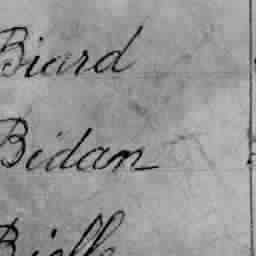 Biard
Bidan